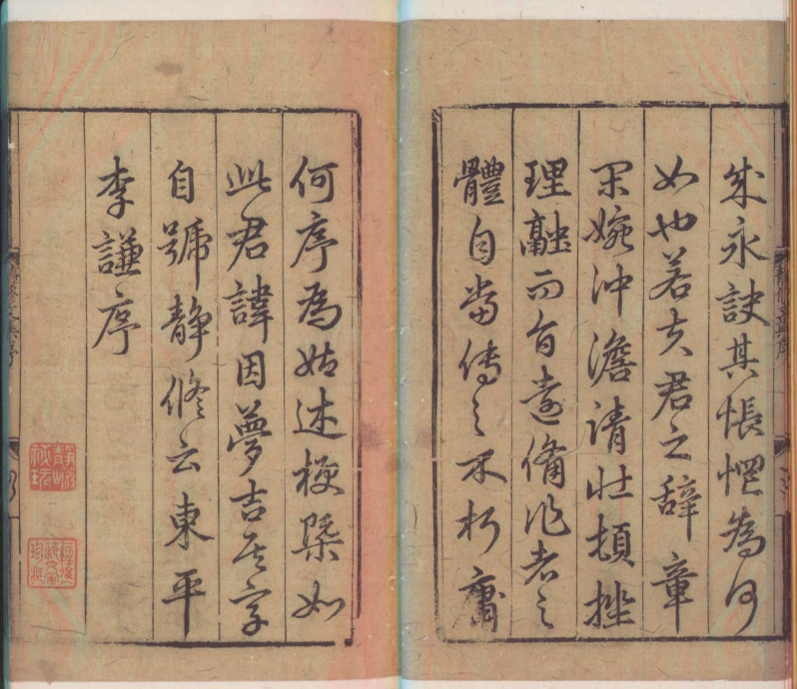 成永訣其悵惘為何
如也若夫君之辭章
閑婉沖澹清壯頓挫
理融而旨遠備作者之
體自當傳之不朽庸
何序為姑述梗槩如
此君諱因夢吉其字
自號静修云東平
李謙序